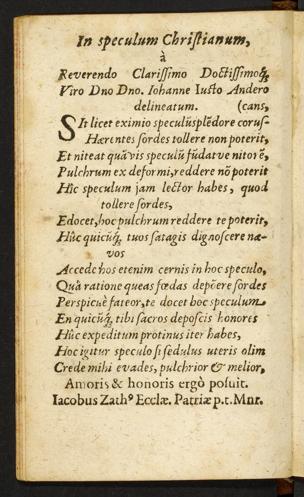 In speculum Christianum,
à
Reverendo Clarissimo Doctissimoq́;
Viro Dno Dno. Iohanne Iusto Andero
delineatum. (cans,
SIt licet eximio speculū splēdore corus-
Hærentes sordes tollere non poterit,
Et niteat quāvis speculū fūdatve nitorē,
Pulchrum ex deformi, reddere nō poterit
Hîc speculum jam lector habes, quod
tollere sordes,
Edocet, hoc pulchrum reddere te poterit,
Hûc quicūq́; tuos satagis dignoscere næ-
vos
Accede hos etenim cernis in hoc speculo,
Quâ ratione queas fœdas depēre sordes
Perspicuè fateor, te docet hoc speculum
En quicūq́; tibi sacros deposcis honores
Hûc expeditum protinus iter habes,
Hoc igitur speculo si sedulus uteris olim
Crede mihi evades, pulchrior & melior,
Amoris & honoris ergò posuit.
Iacobus Zathꝰ Ecclæ. Patriæ p.t. Mnr.